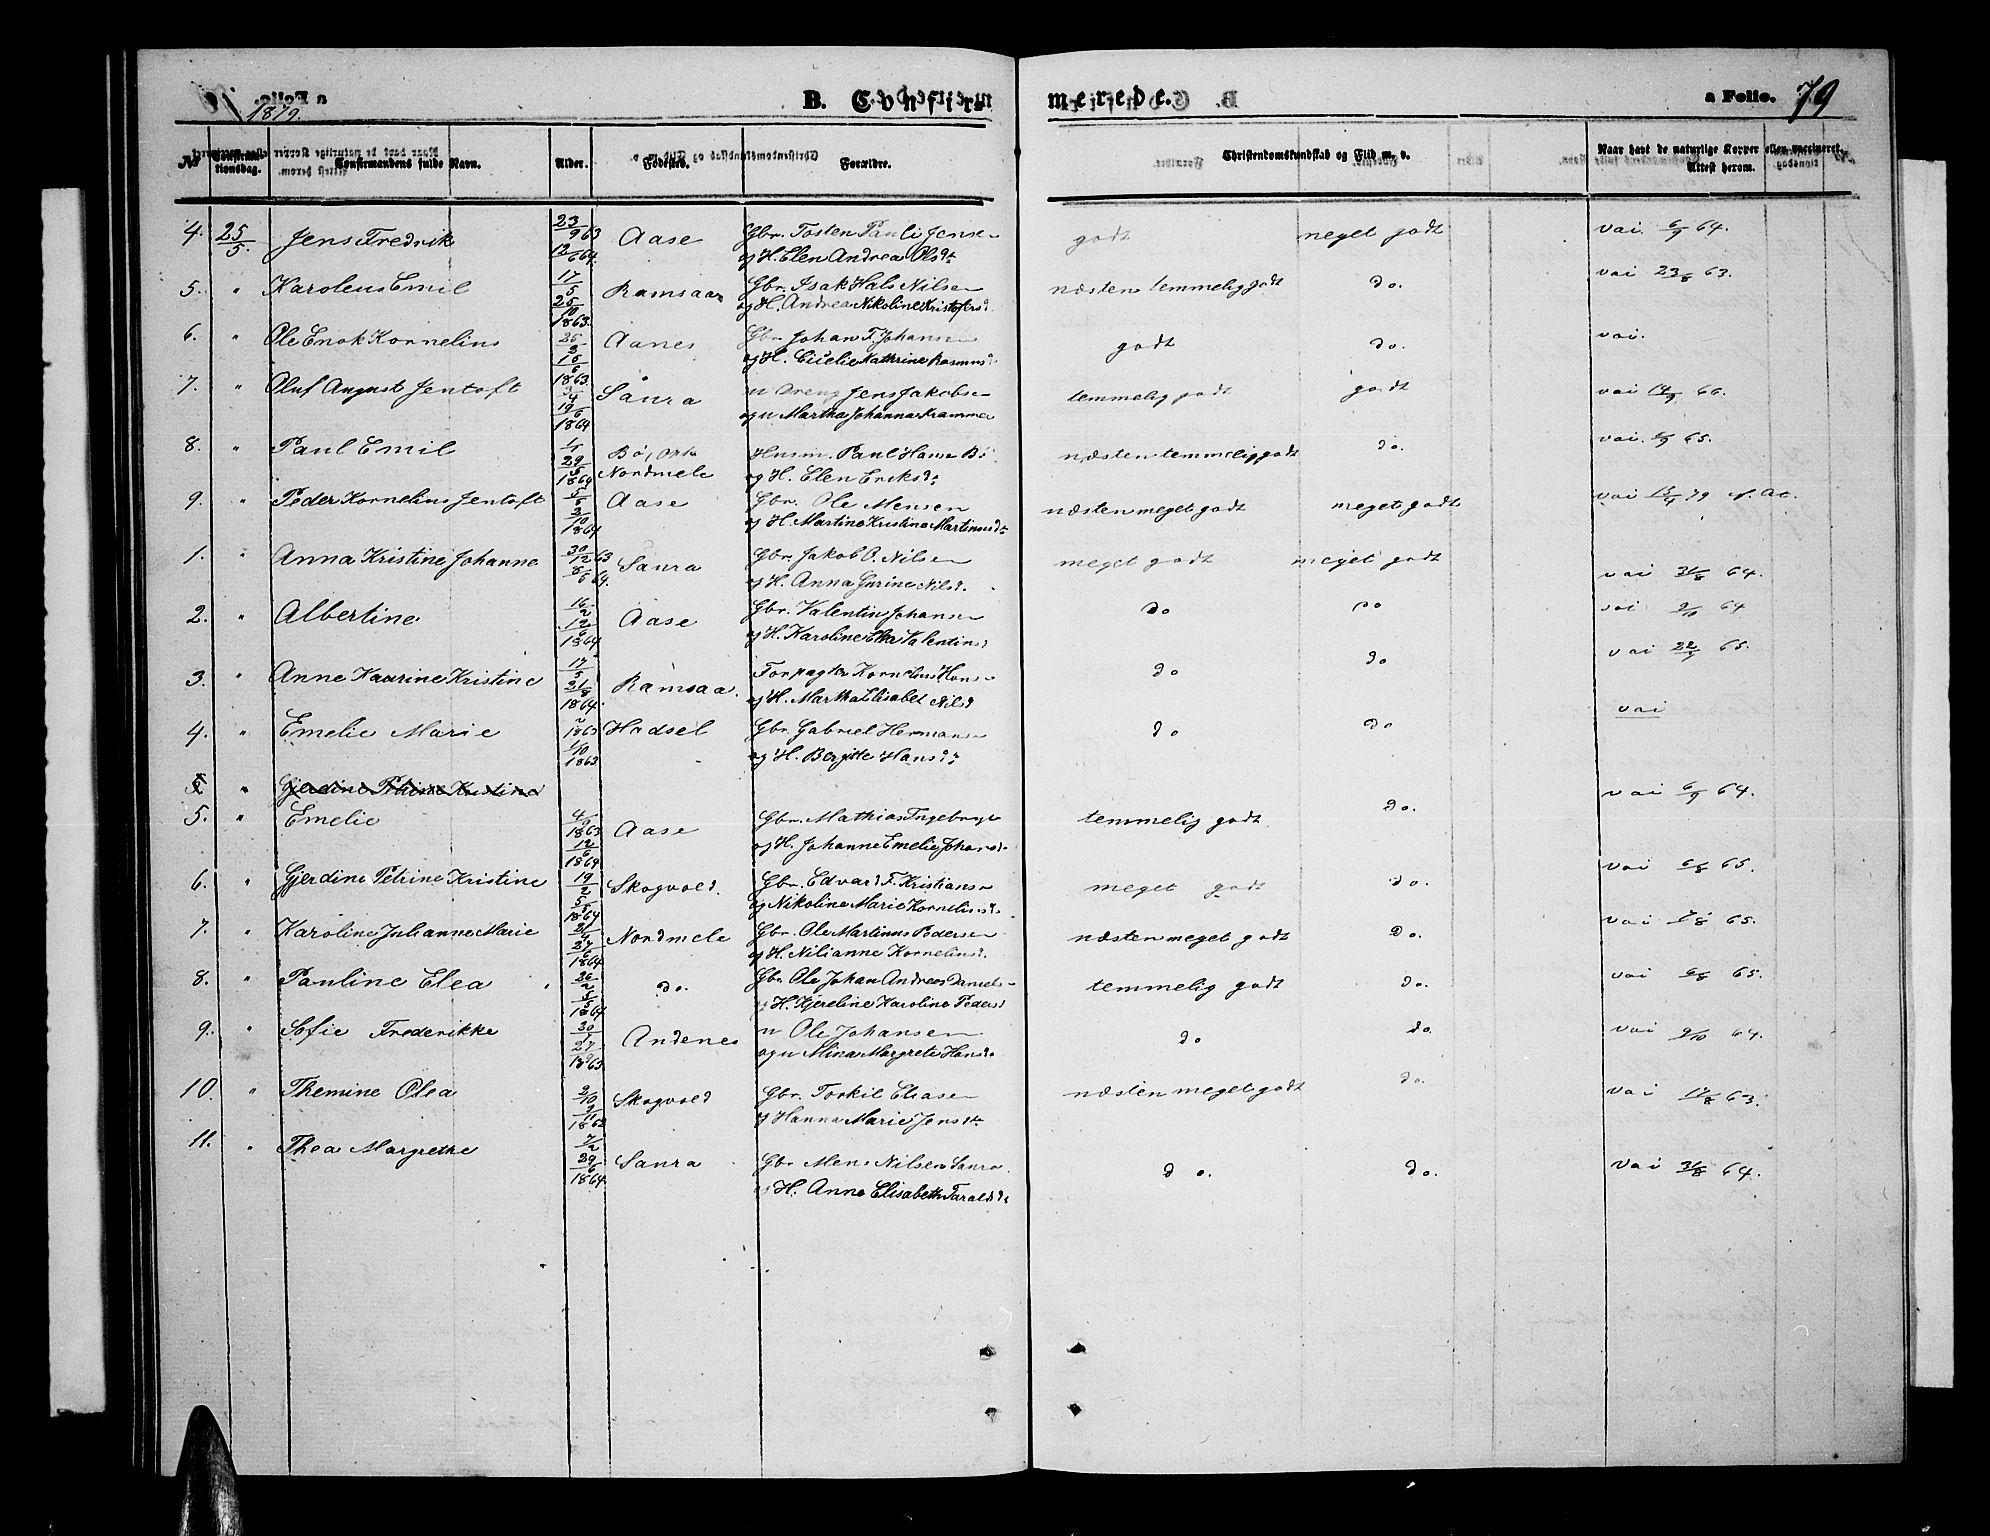 1879.
B. Confir-
merede.
a Folio. 79
No Confirmationsdag. Confirmandens fulde Navn. Alder. Fødested. Forældre. Christendomskundskab og Flid m. v. Naar havt de naturlige Kopper eller vaccineret. Attest herom.
4. 25/5. Jens Fredrik 23/9 63 12/6 64. Aase Gbr. Tosten Pauli Jensen og H. Elen Andrea Olsdtr godt meget godt vai. 6/9 64.
5. " Karolius Emil 17/5 25/10 1863. Ramsaa Gbr. Isak Hals Nilsen og H. Andrea Nikoline Kristofersd. næsten temmelig godt do. vai 23/8 63.
6. " Ole Enok Kornelius 1863. Aanes Gbr. Johan F. Johansen og H. Cicelie Kathrine Rasmusd. godt do. vai.
7. " Oluf August Jentoft 19/6 1864 Saura u Dreng Jens Jakobsen og u Martha Johanna Kramme temmelig godt godt vai 14/9 66.
8. " Paul Emil 29/5 1864 Bø, Nordmele Husm. Paul Hansen Bø og H. Elen Eriksd. næsten temmelig godt do. vai. 65.
9. " Peder Kornelius Jentoft 2/10 1864 Aase Gbr. Ole Mensen og H. Martine Kristine Martinusdtr næsten meget godt meget godt vai 79
1. " Anna Kristine Johanne 30/12 63 64. Saura Gbr. Jakob O. Nilsen og H. Anna Gurine Nilsd. meget godt meget godt vai 31/8 64.
2. " Albertine 16/2 12/6 1864 Aase Gbr. Valentin Johansen og H. Karoline Elen Valentinsd do do vai 64
3. " Anne Kaarine Kristine 17/5 21/8 1864. Ramsaa. Forpagter Kornelius Hans og H. Martha Elisabet Nilsd do do vai 22/9 65.
4. " Emelie Marie 1863 1/10 1863 Hadsel Gbr. Gabriel Hermansen og H. Bergitte Hansdtr do do vai
" Gjerdine Petrine Kristine
5. " Emelie 4/9 1863 12/6 1864 Aase Gbr. Mathias Ingebrigt og H. Johanne Emelie Johansd. temmelig godt do. vai 6/9 64.
6. " Gjerdine Petrine Kristine 19/2 5/5 1864 Skogvold. Gbr. Edvard F. Kristiansen og Nikoline Marie Korneliusd. meget godt do. vai 6/8 65.
7. " Karoline Julianne Marie 27/6 1864 Nordmele Gbr. Ole Martinus Pedersen og H. Nilianne Korneliusd. næsten meget godt do. vai 65.
8. " Pauline Elea 26/2 5/5 1864 do. Gbr. Ole Johan Andreas Daniels og H. Kjereline Karoline Pedersd temmelig godt do. vai 6/8 65.
9. " Sofie Frederikke 1863 Andenes u Ole Johansen og u Mina Margrete Hansd. do do. vai 9/10 64.
10. " Themine Olea 2/10 1863 Skogvold Gbr. Torkil Eliasen og Hanna Marie Jensdtr næsten meget godt do. vai 17/8 63.
11. " Thea Margrethe 7/2 29/6 1864. Saura Gbr Mens Nilsen Saura. og H. Anne Elisabeth Taraldsd. do. do. vai 31/8 64.